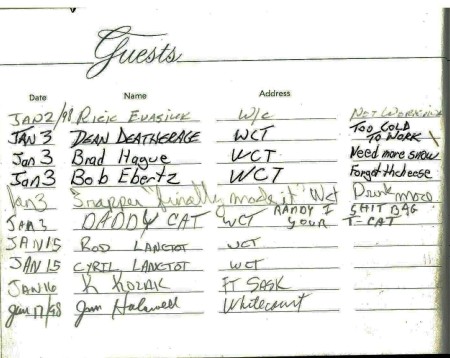 Guests
Date Name Address
JAN 2/98 RICK EVASIUK W/C NOT WORKING
JAN 3 DEAN DEATHERAGE WCT TOO COLD TO WORK
Jan 3 Brad Hague WCT Need more snow
Jan 3 Bob Ebertz WCT Forgot the cheese
Jan 3 Snapper "finally made it" Wct Drink more
JAN 3 DADDY CAT WCT RANDY I YOUR SHIT BAG T-CAT
JAN 15 ROD LANCTOT WCT
JAN 15 CYRIL LANCTOT WCT
JAN 16 K KOZIAK FT SASK
Jan 17/98 Whitecourt